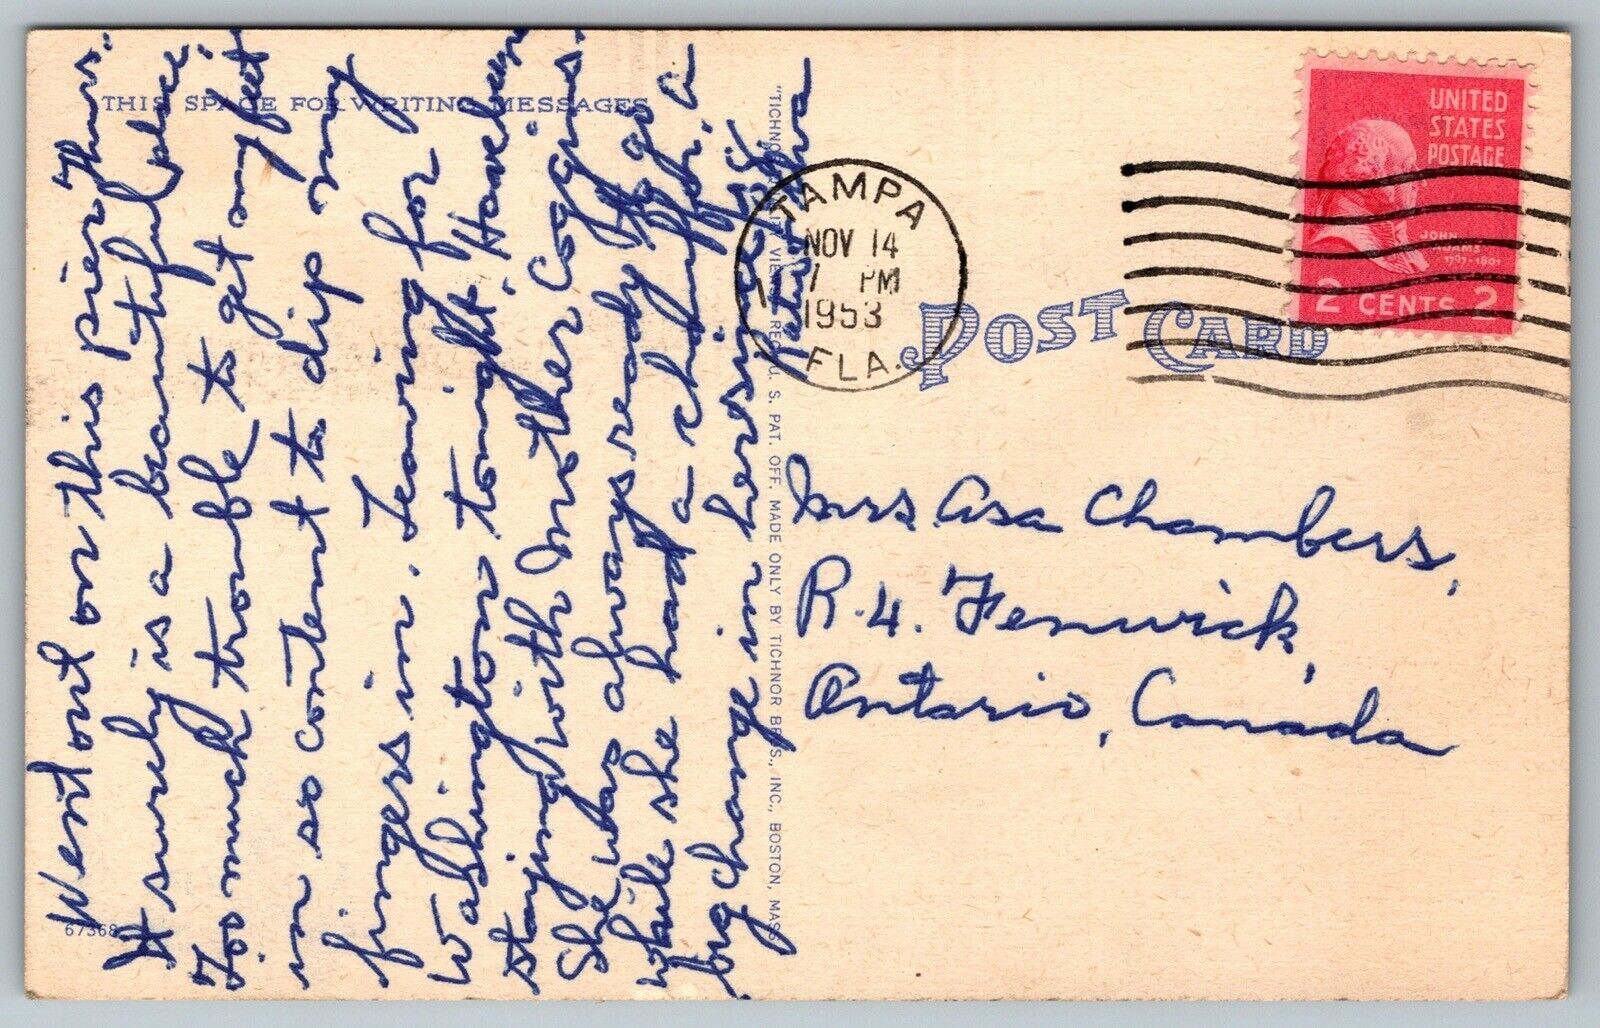 THIS SPACE FOR WRITING MESSAGES
Went out on this pier Thurs.
It surely is a beautiful place.
Too much trouble to get my feet
in so content to dip my
fingers in. Leaving for
Washington tonight. Have been
staying with Mother Coggins.
She was always ready to go
while she had a chauffer. a
big change in her since
67368
"TICHNOR QUALITY VIEWS," REG. U. S. PAT. OFF. MADE ONLY BY TICHNOR BROS., INC., BOSTON, MASS.
TAMPA
NOV 14
7 PM
1953
FLA.
POST CARD
UNITED
STATES
POSTAGE
JOHN
ADAMS
1797-1801
2 CENTS 2
Mrs. Asa Chambers,
R.4. Fenwick,
Ontario, Canada